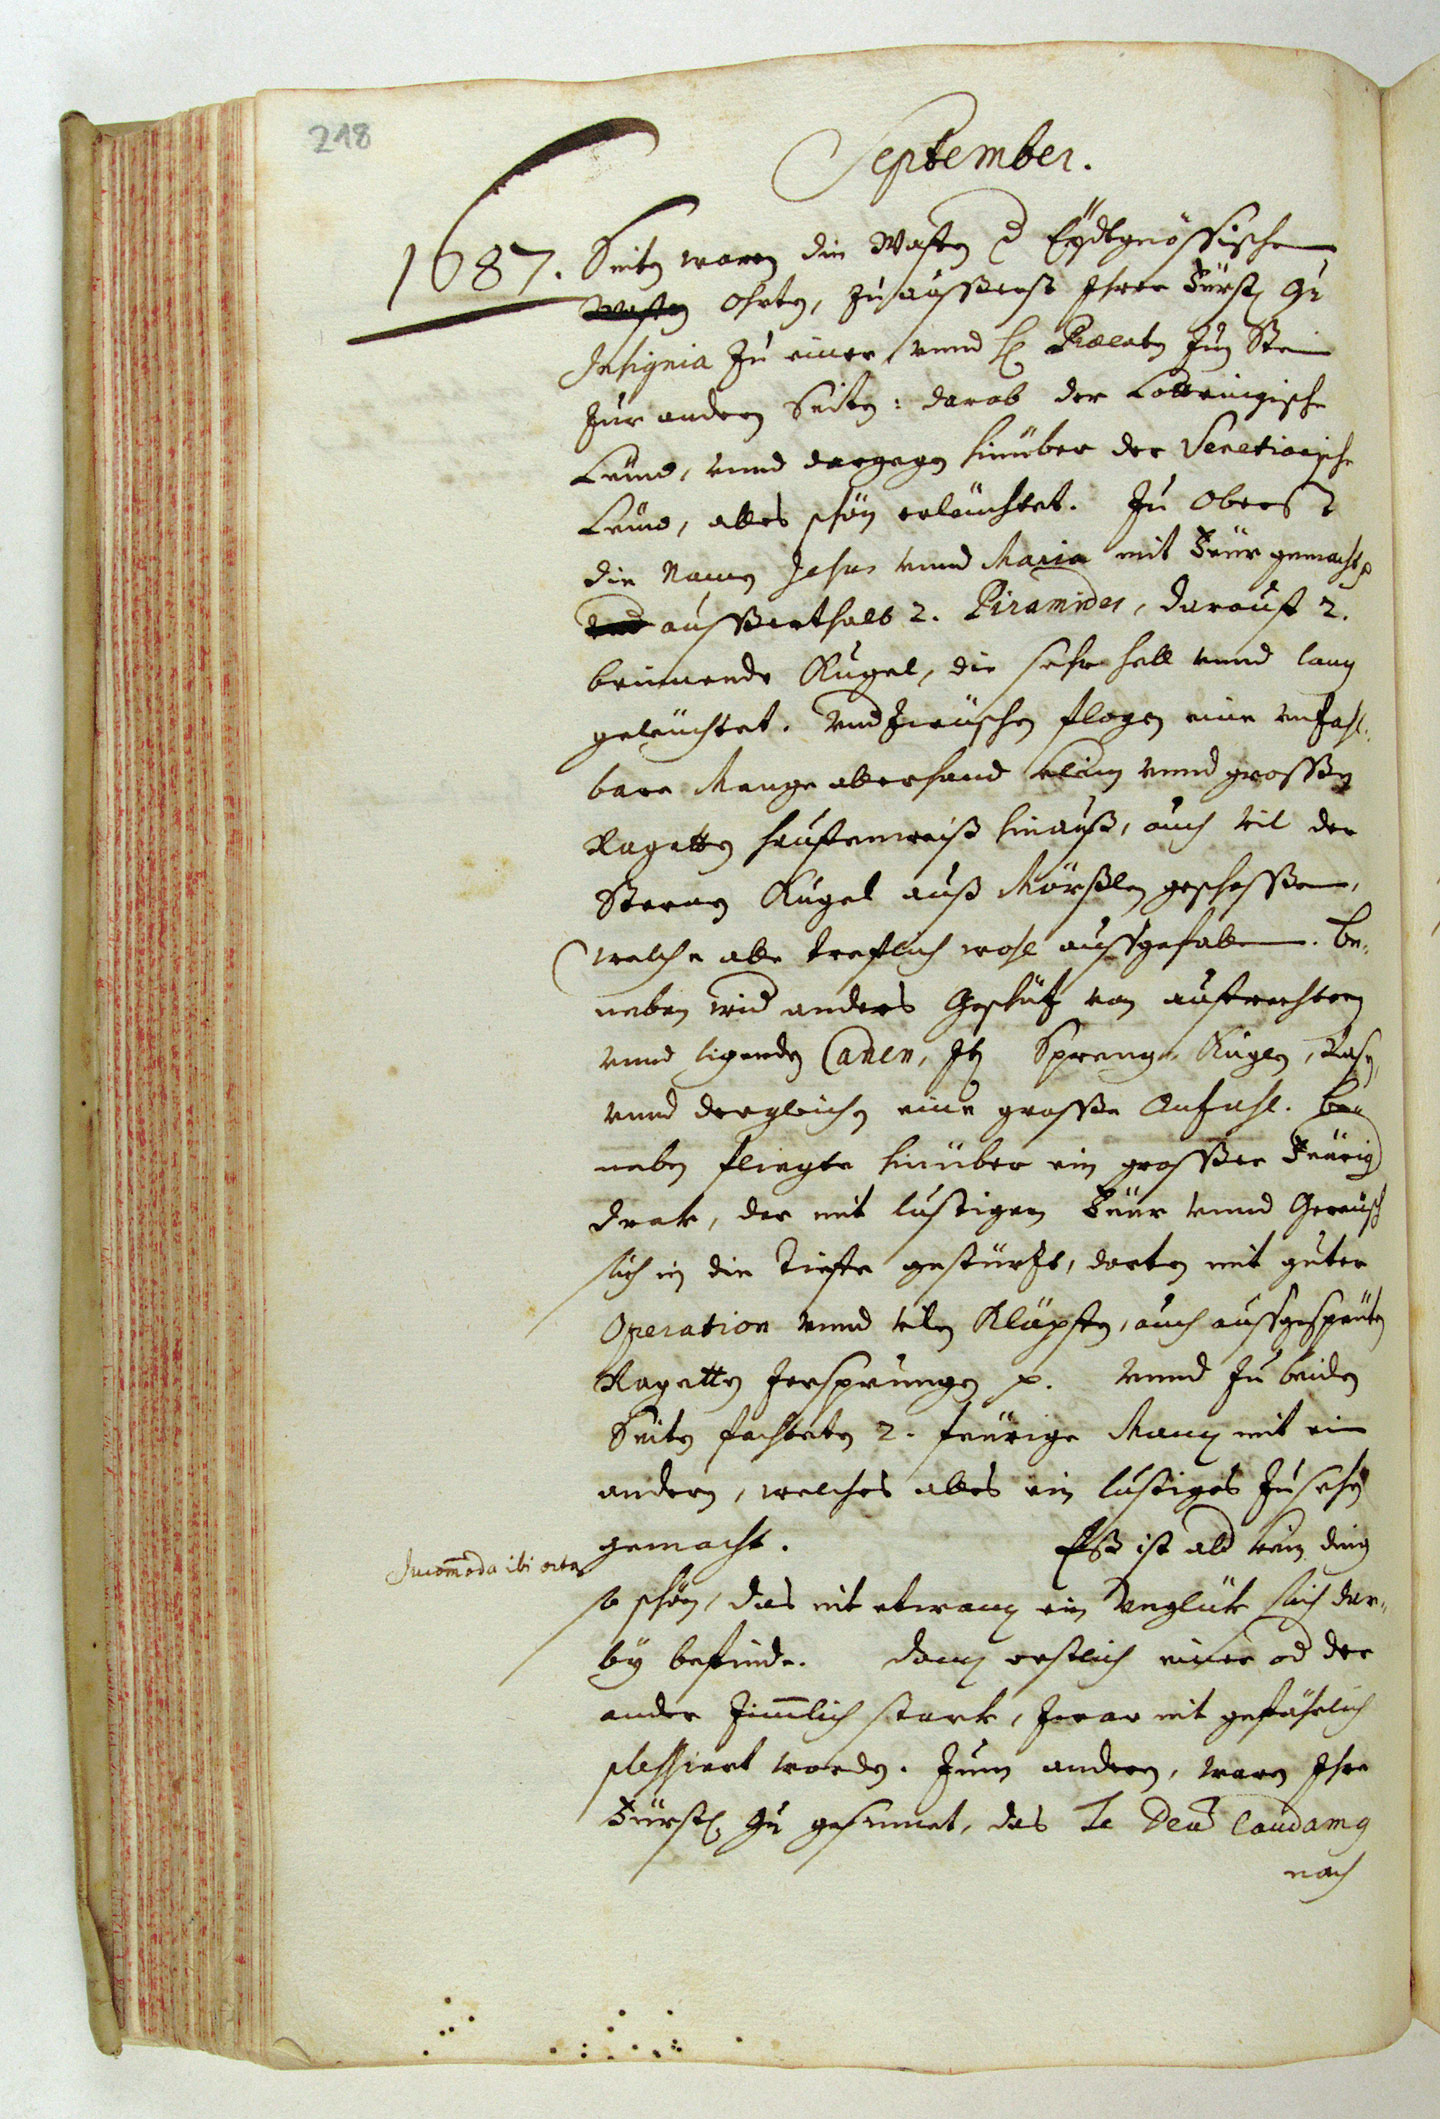 218
September.
1687. Seiten waren die Waffen d Eÿdtgnössischen
Waffen Ohrten, zu ausserst Ihrer Fürstl Gn
Insignia zu einer vnnd H Prælaten zuo Stein
zur andern Seiten: darob der Lottringische
Leüw, vnnd dargegen hinüber der Venetianische
Leüw, alles schön erleüchtet. Zu Oberst
die Namen Jesus vnnd Maria mit Feür gemacht
vnd ausserthalb 2. Piramides, darauff 2.
brinnende Kugel, die sehr hell vnnd lang
geleüchtet. Vndzwüschen flogen eine vnzahl-
bare Menge allerhand klein vnnd grossen
Ragetten hauffenweiß hinauß, auch vil der
Sternen Kugel auß Mörßlen geschossen,
welche alle trefflich wohl aussgefallen. Be-
neben vnd anders Geschütz von auffrechten
vnnd ligenden Canen, It Spreng-Kuglen,
vnnd dergleichen eine grosse Anzahl. Be-
neben fliegte hinüber ein grosser Feürig
Drak, der mit lustigem Feür vnnd Gereüsch
sich in die Tieffe gestürzt, dorten mit guter
Operation vnnd vilen Kläpffen, auch aussgespeüten
Ragetten zersprungen p. Vnnd zu beiden
Seiten fechteten 2. feürige Mann mit ein
andern, welches alles ein lustiges zusehen
gemacht. Eß ist ald kein ding
Incommoda ibi orta
so schön, das nit etwann ein Vnglük sich dar-
by befinde. Dann erstlich einer od der
ander zimmlich stark, zwar nit gefährlich
plessiert worden. Zum andern, waren Ihre
Fürstl. Gn gesinnet, das Te Deum laudamus
nach